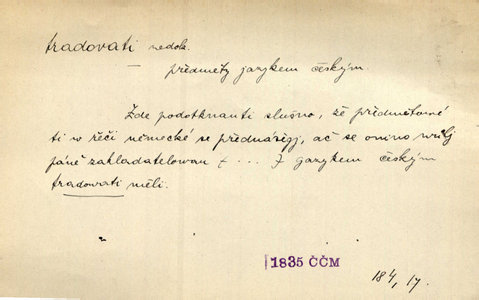 tradovati nedok.
předměty jazykem českým.
Zde podotknauti slušno, že předmětowé
ti w řěči německé se přednášegj, ač se onino wůlj
páně zakladatelowau + . . . ) gazykem českým
tradowati měli.
1835 ČČM
184, 17.